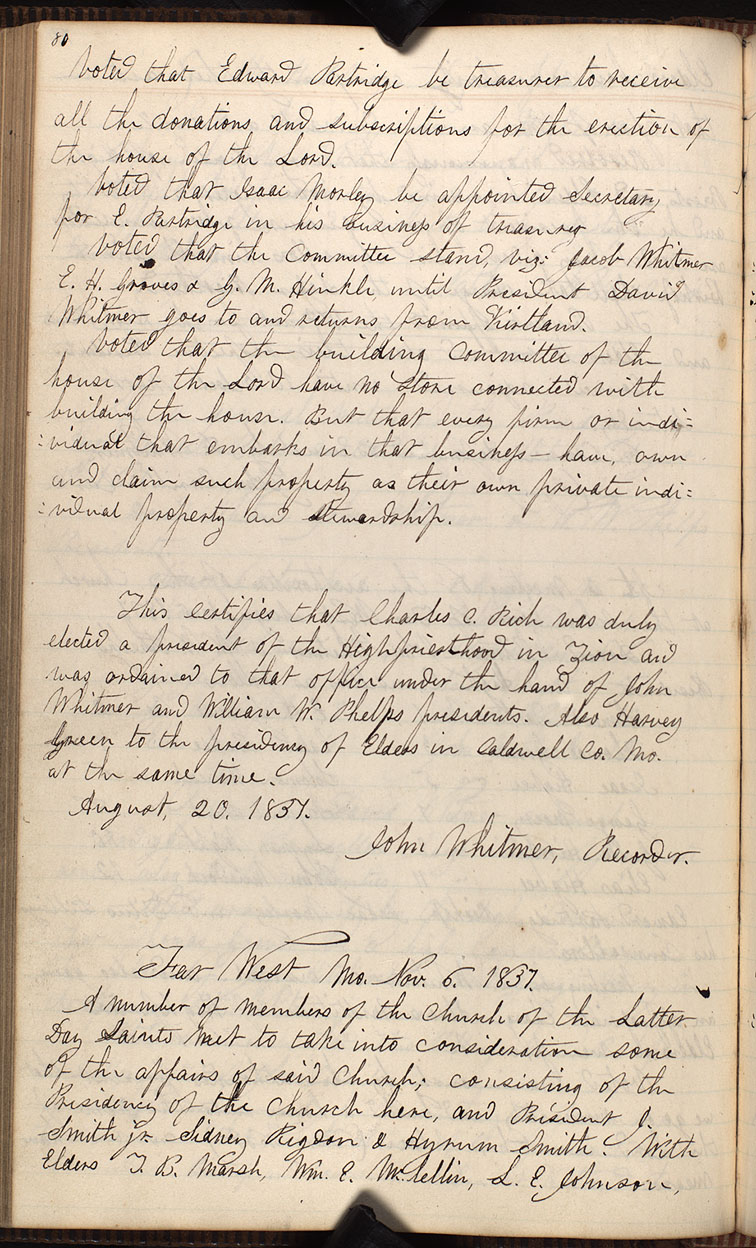 80
Voted that Edward Partridge be treasurer to receive
all the donations and subscriptions for the erection of
the house of the Lord.
Voted that Isaac Morley be appointed Secretary
for E. Partridge in his business of treasurer
Voted that the Committee stand, viz: Jacob Whitmer
E. H. Groves & G. M. Hinkle, until President David
Whitmer goes to and returns from Kirtland.
Voted that the building Committee of the
house of the Lord have no Store connected with
building the house. But that every firm or indi=
=vidual that embarks in that business— have, own
and claim such property as their own private indi=
=vidual property and stewardship.
This Certifies that Charles C. Rich was duly
elected a president of the Highpriesthood in Zion and
was ordained to that office under the hand of John
Whitmer and William W. Phelps presidents. Also Harvey
Green to the presidency of Elders in Caldwell Co. Mo.
at the same time.
August, 20. 1837.
John Whitmer, Recorder.
Far West Mo. Nov. 6. 1837.
A number of members of the Church of the Latter
Day Saints met to take into consideration some
of the affairs of said Church; consisting of the
Presidency of the Church here, and President J.
Smith jr. Sidney Rigdon & Hyrum Smith. With
Elders T. B. Marsh, Wm. E. McLellin, L. E. Johnson,